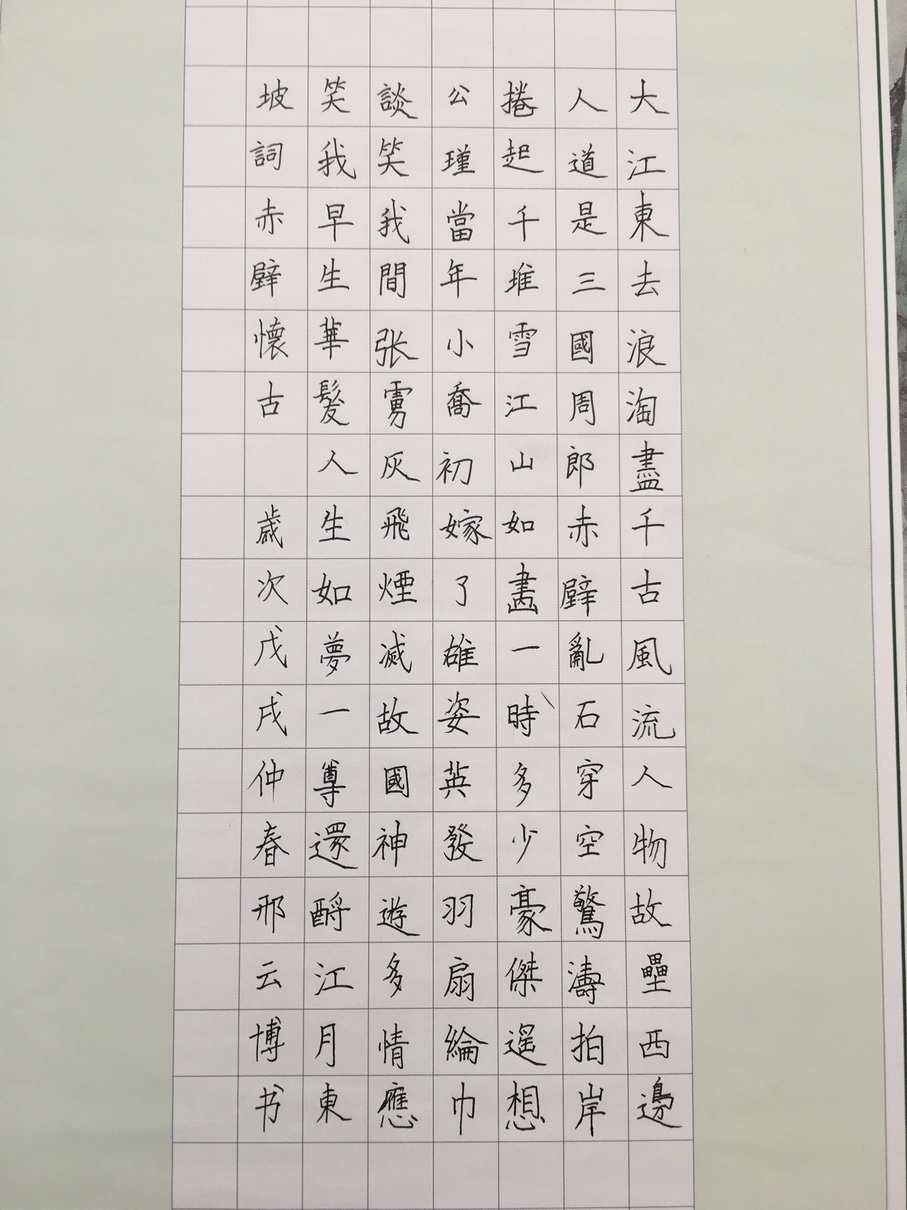 大江東去浪淘盡千古風流人物故壘西邊
人道是三國周郎赤壁亂石穿空驚濤拍岸
捲起千堆雪江山如畫一時多少豪傑遥想
公瑾當年小喬初嫁了雄姿英發羽扇綸巾
談笑我間张虜灰飛煙滅故國神遊多情應
笑我早生華髮人生如夢一尊還酹江月東
坡詞赤壁懷古 歲次戊戌仲春邢云博书